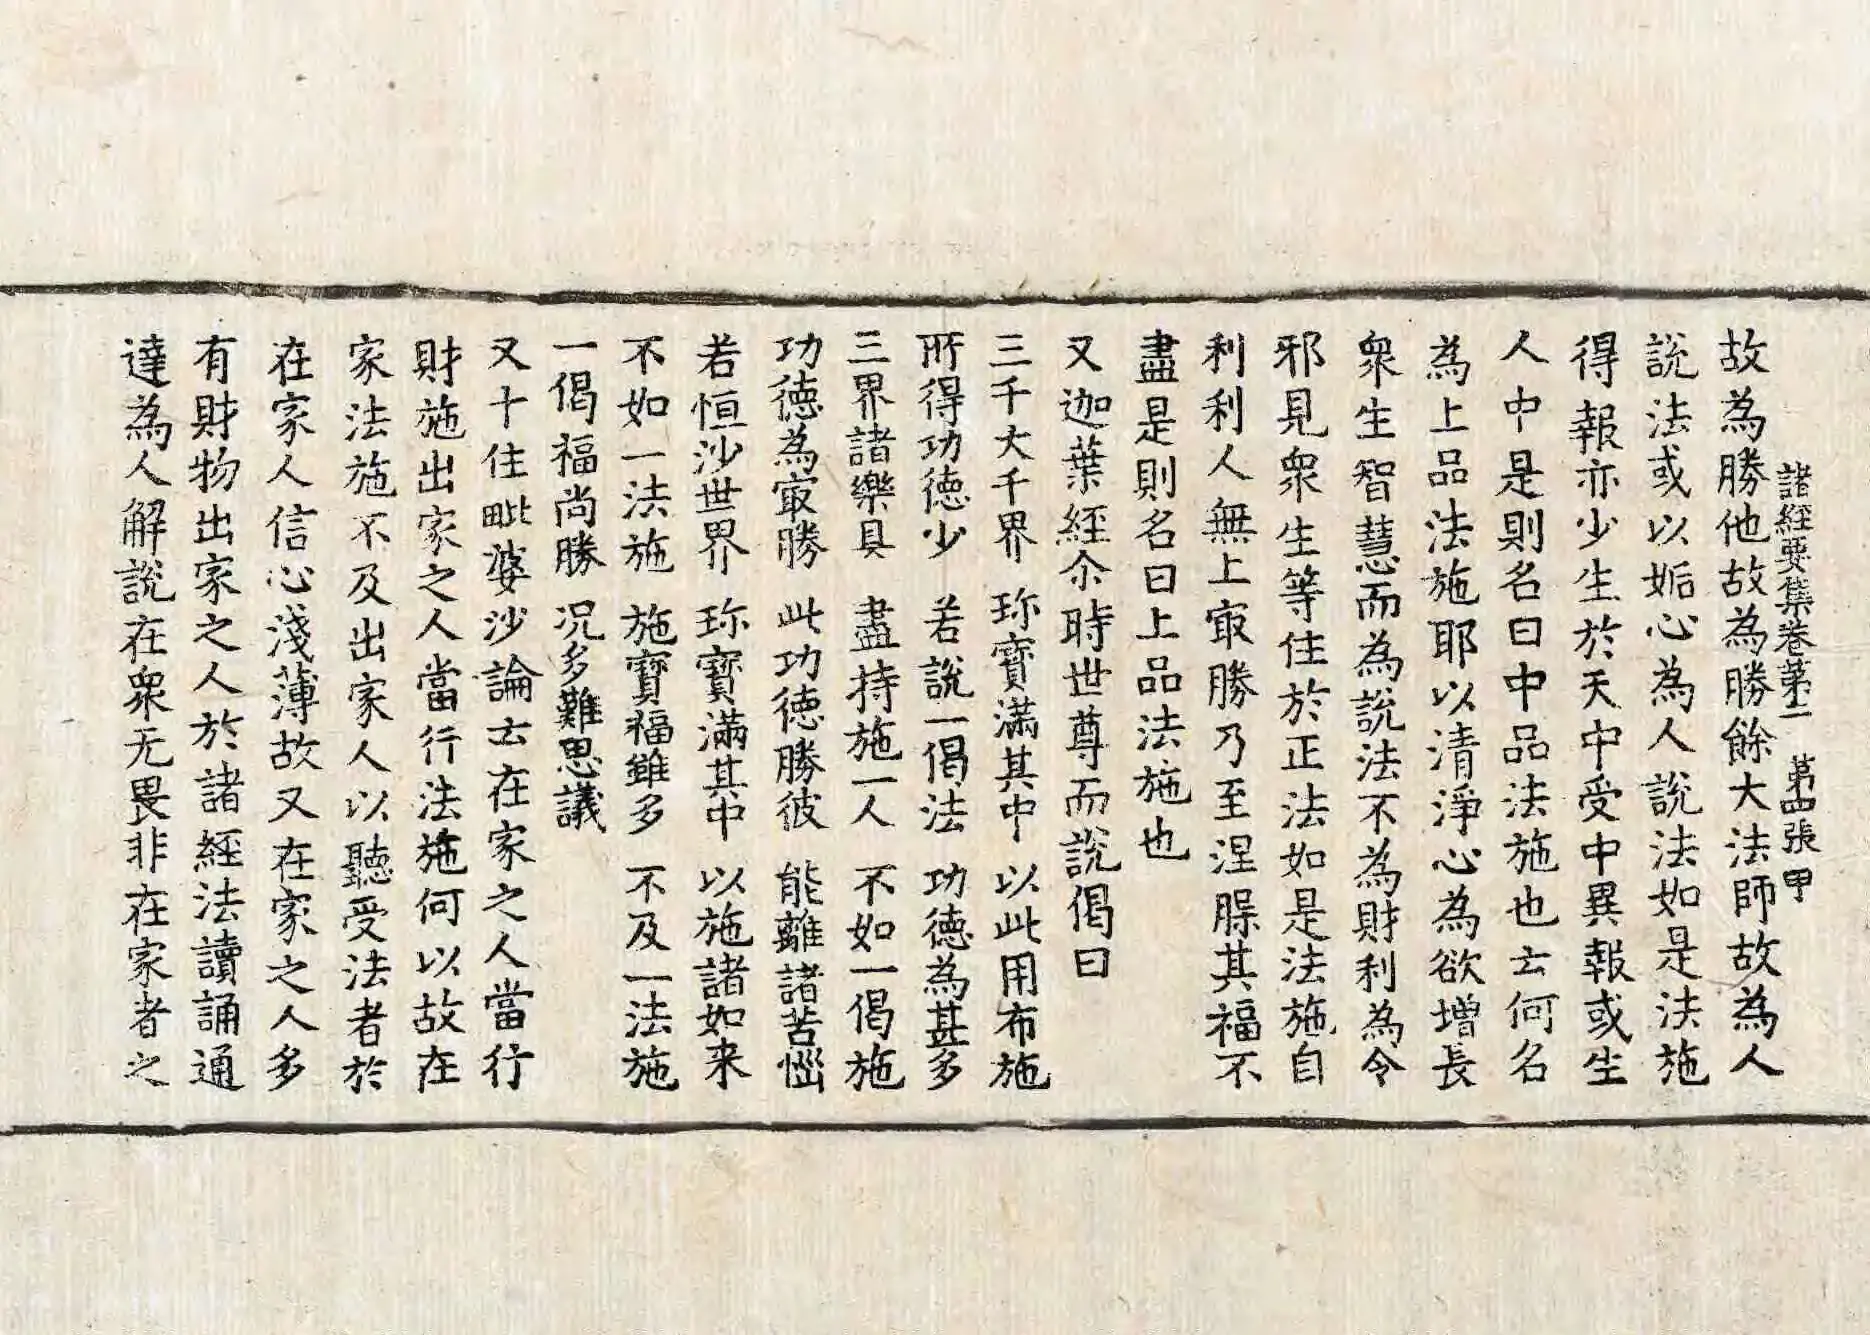 諸經要集卷第十一　第四張　甲
故為勝他故為勝餘大法師故為人
說法或以姤心為人說法如是法施
得報亦少生於天中受中異報或生
人中是則名曰中品法施也云何名
為上品法施耶以清淨心為欲增長
衆生智慧而為說法不為財利為令
邪見衆生等住於正法如是法施自
利利人無上㝡勝乃至涅槃其福不
盡是則名曰上品法施也
又迦葉經尒時世尊而說偈曰
三千大千界　珎寶滿其中　以此用布施
所得功德少　若說一偈法　功德為甚多
三界諸樂具　盡持施一人　不如一偈施
功德為㝡勝　此功德勝彼　能離諸苦惱
若恒沙世界　珎寶滿其中　以施諸如来
不如一法施　施寶福雖多　不及一法施
一偈福尚勝　况多難思議
又十住毗婆沙論云在家之人當行
財施出家之人當行法施何以故在
家法施不及出家人以聽受法者於
在家人信心淺薄故又在家之人多
有財物出家之人於諸經法讀誦通
達為人解說在衆无畏非在家者之